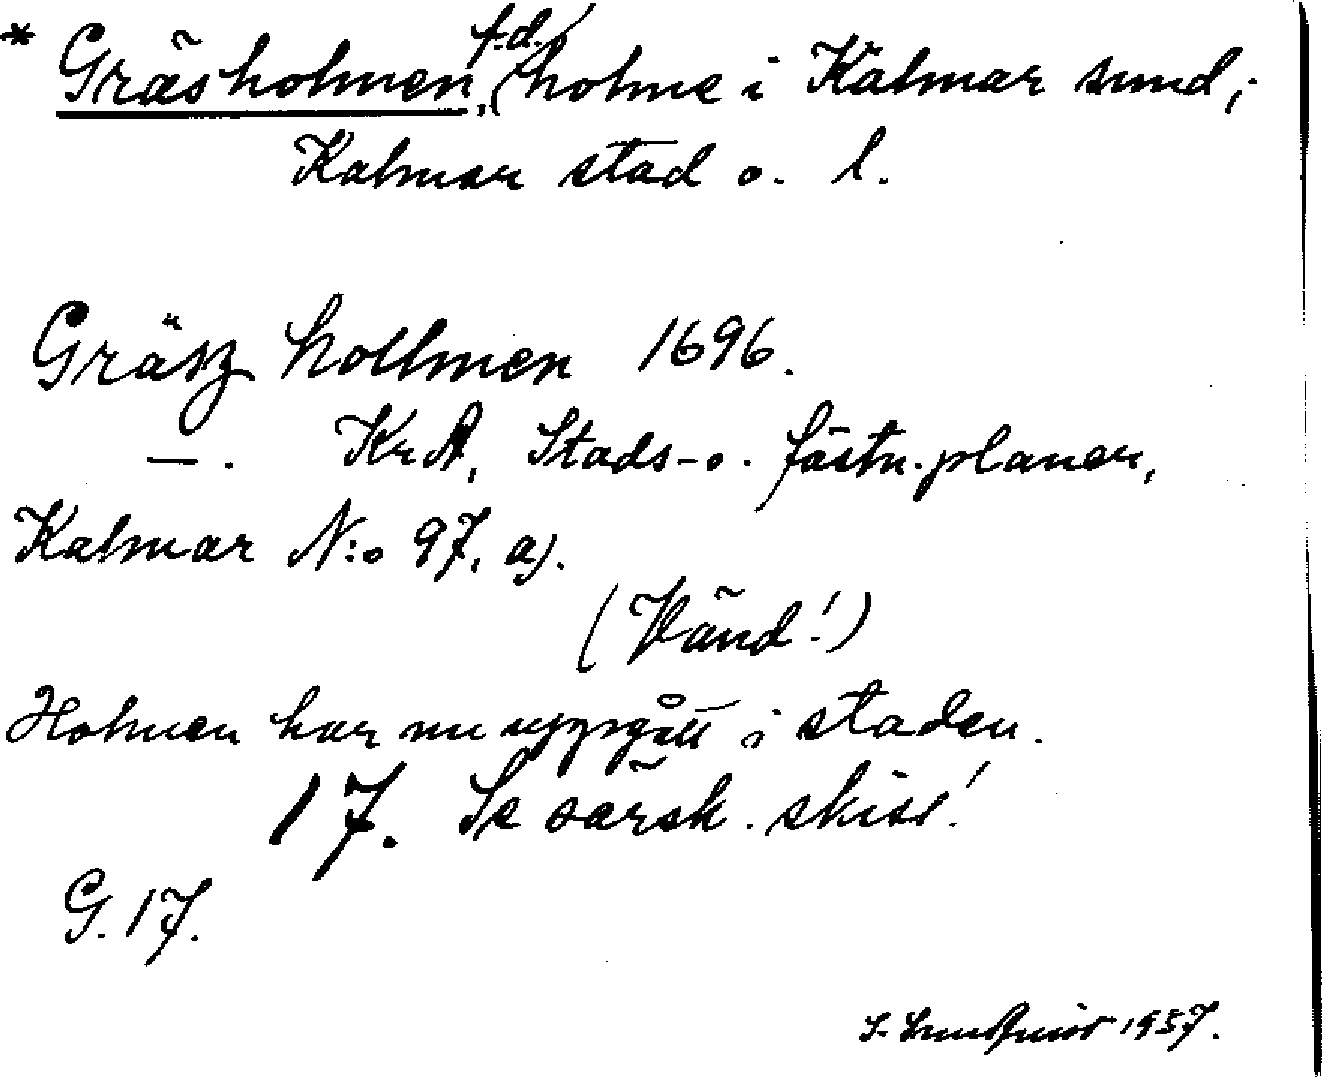 * Gräsholmen, f.d. holme i Kalmar sund;
Kalmar stad o. l.
Gräsz hollmen 1696.
—. KrA, Stads- o. fästn. planer,
Kalmar N:o 97, a).
(Vänd!)
Holmen har nu uppgått i staden.
17. Se särsk. skiss!
G. 17.
S. 1957.